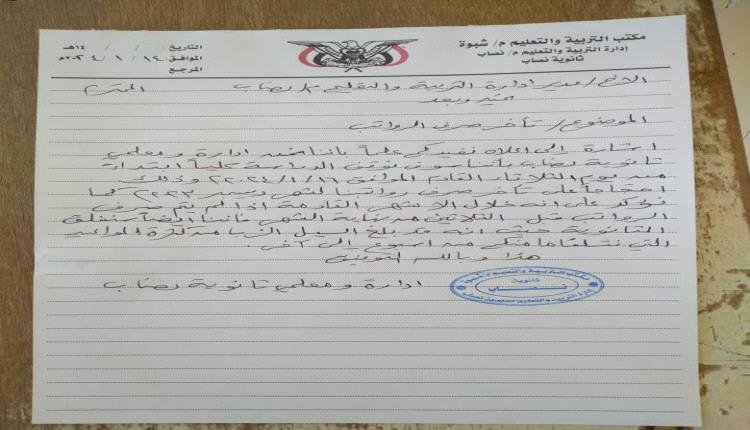 مكتب التربية والتعليم م/ شبوة
إدارة التربية والتعليم م/ نصاب
ثانوية نصاب
التاريخ: / / ١٤هـ
الموافق: ١٤ / ١ / ٢٠٢٤م
المرجع
الاخ/ مدير ادارة التربية والتعليم م/ نصاب المحترم
تحية وبعد
الموضوع/ تأخر صرف الرواتب
اشارة الى اعلاه نفيدكم علماً بأننا نحن ادارة ومعلمي
ثانوية نصاب بأننا سوف نوقف الدراسة كلياً ابتداءً
من يوم الثلاثاء القادم الموافق ٢٠٢٤/١/١٦ وذلك
احتجاجاً على تأخر صرف رواتبنا لشهر ديسمبر ٢٠٢٣ كما
نؤكد على انه خلال الاشهر القادمة اذا لم يتم صرف
الرواتب قبل الثلاثين من نهاية الشهر فإننا ايضاً سنغلق
الثانوية حيث انه قد بلغ السيل الزبا من كثرة المواعيد
التي نتلقاها منكم من اسبوع الى آخر.
هذا وبالله التوفيق
ادارة ومعلمي ثانوية نصاب
مكتب التربية والتعليم م/شبوة
ثانوية
نصاب